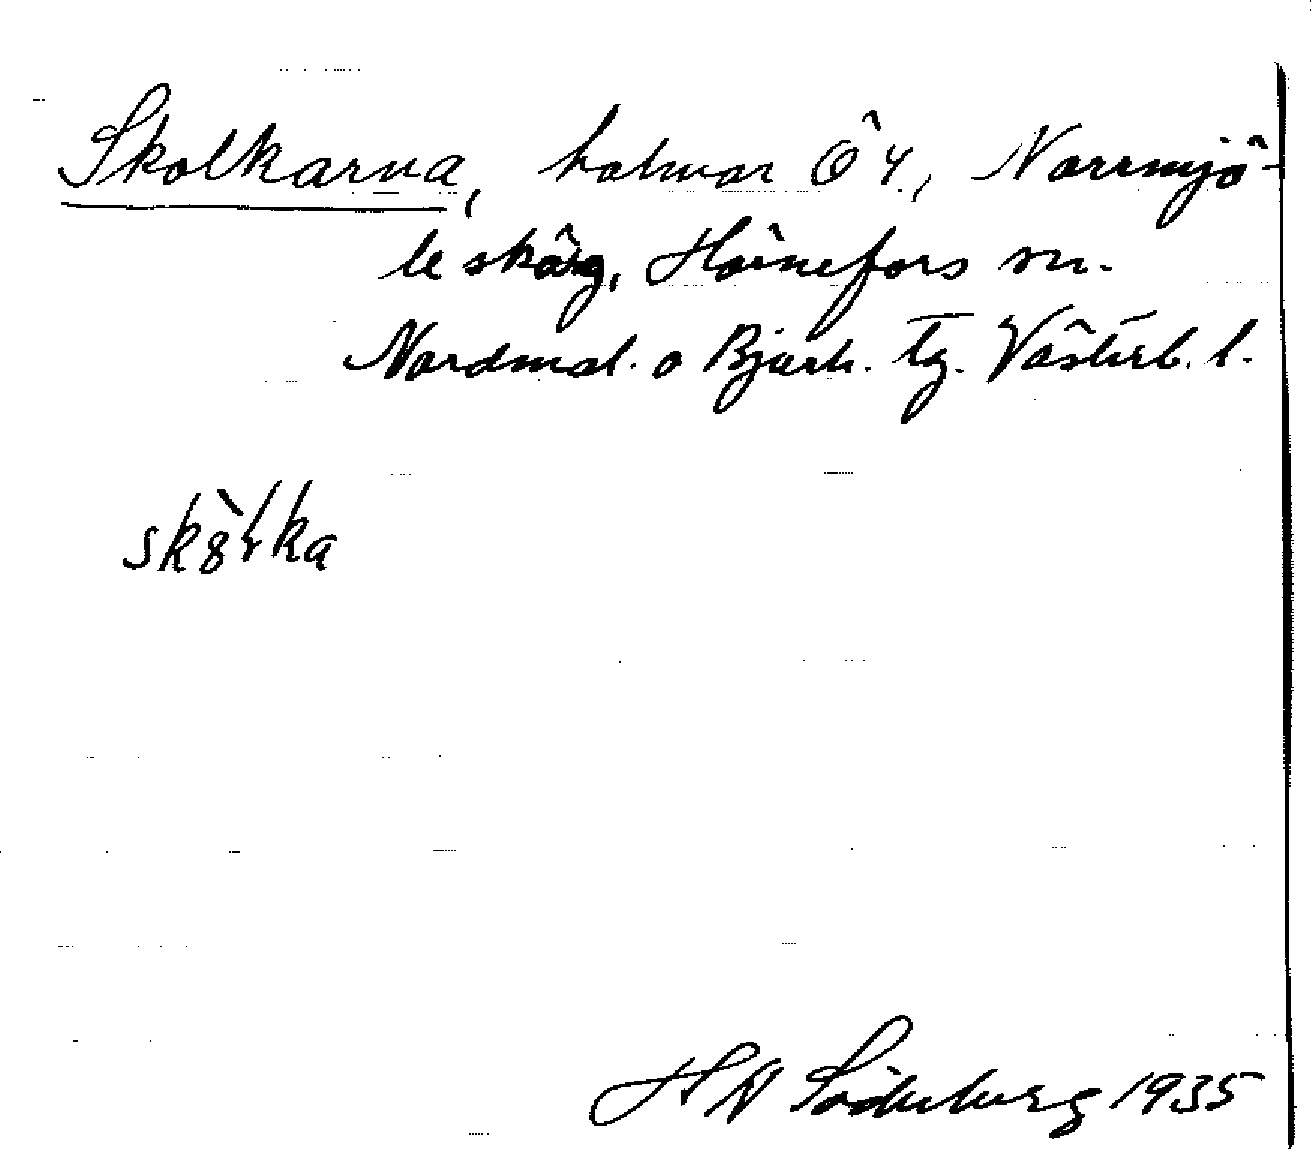 Skolkarna, holmar ÖY, Norrmjö-
le skärg, Hörnefors sn.
Nordmal. o Bjurh. tg. Västerb. l.
H N Söderberg 1935